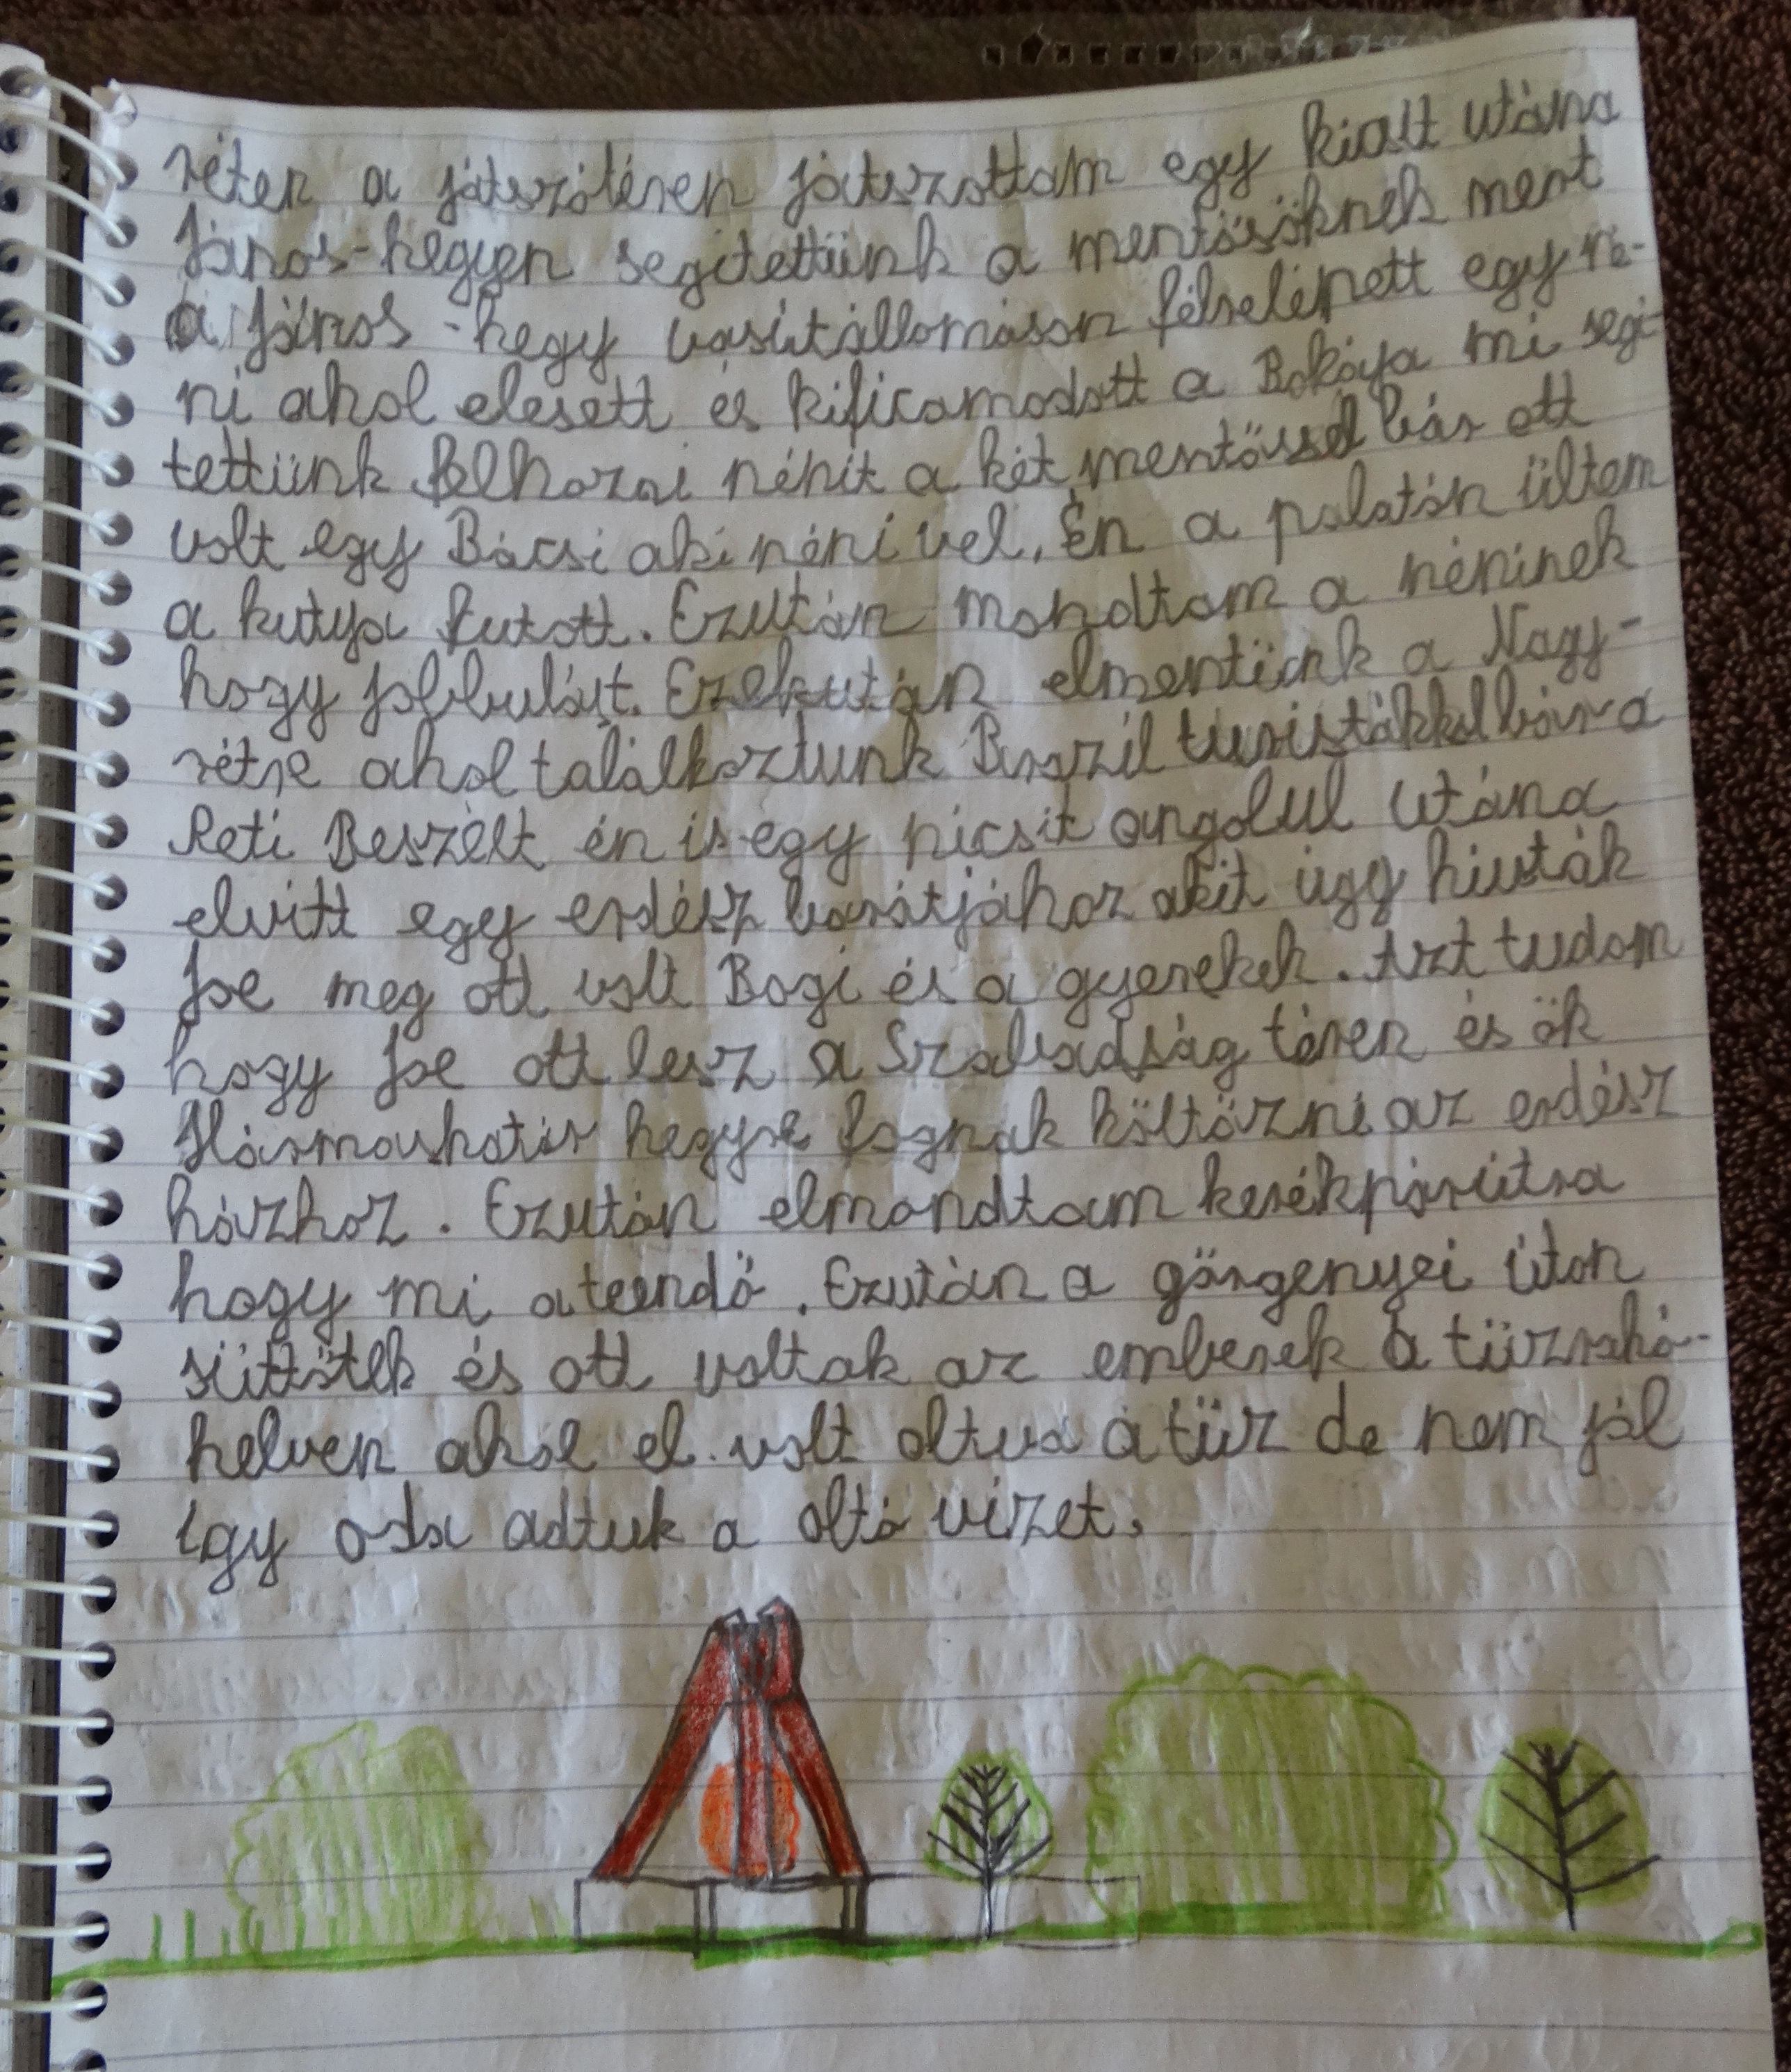 réten a játszótéren játszottam egy kicsit utána
János-hegyen segitettünk a mentősöknek mert
a János-hegy vasútállomáson félrelépett egy né-
ni ahol elesett és kificamodott a Bokája mi segi-
tettünk felhozni nénit a két mentőssel bár ott
volt egy Bácsi aki néni vel. Én a palatán ültem
a kutya futott. Ezután mondtam a néninek
hogy jobbulást. Ezekután elmentünk a Nagy-
rétre ahol találkoztunk Brazil turistákkal bár a
Reti Beszélt én is egy picsit angolul utána
elvitt egy erdész barátjához akit úgy hivták
Joe meg ott volt Bogi és a gyerekek. Azt tudom
hogy Joe ott lesz a Szabadság téren és ők
Hármashatár hegyre fognak költözni az erdész
házhoz. Ezután elmondtam kerékpárútra
hogy mi a teendő. Ezután a görgenyei úton
sütötek és ott voltak az emberek a tüzrakó-
helyen ahol el volt oltva a tüz de nem jól
így oda adtuk a oltó vizet.